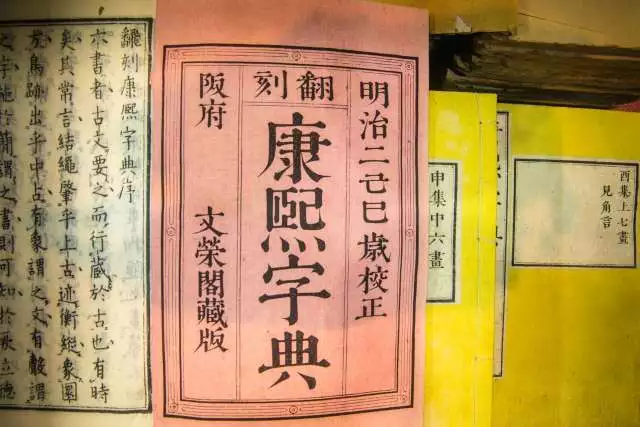 酉集上七畫
見角言
申集中六畫
熙字典
明治二己巳歲校正
翻刻
康熙字典
阪府 文榮閣藏版
刻康熙字典序
本書者古文要之而行藏於古也有時
矣其常言結繩肇乎上古迹衡縱象圜
鳥跡出乎中古有象謂之文有聲謂
之字施於簡謂之書則可知於立德